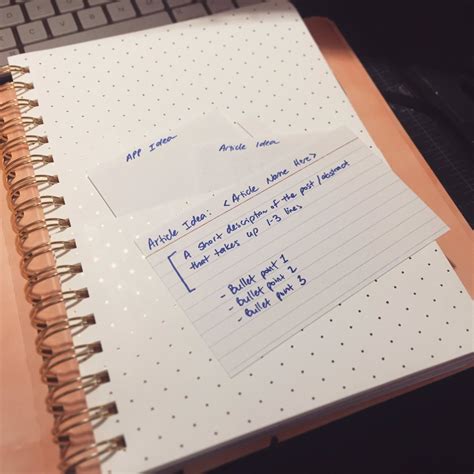 APP Idea
Article Idea
Article Idea: <Article Name Here>
A short description of the post/abstract
that takes up 1-3 lines
- Bullet point 1
- Bullet point 2
- Bullet point 3